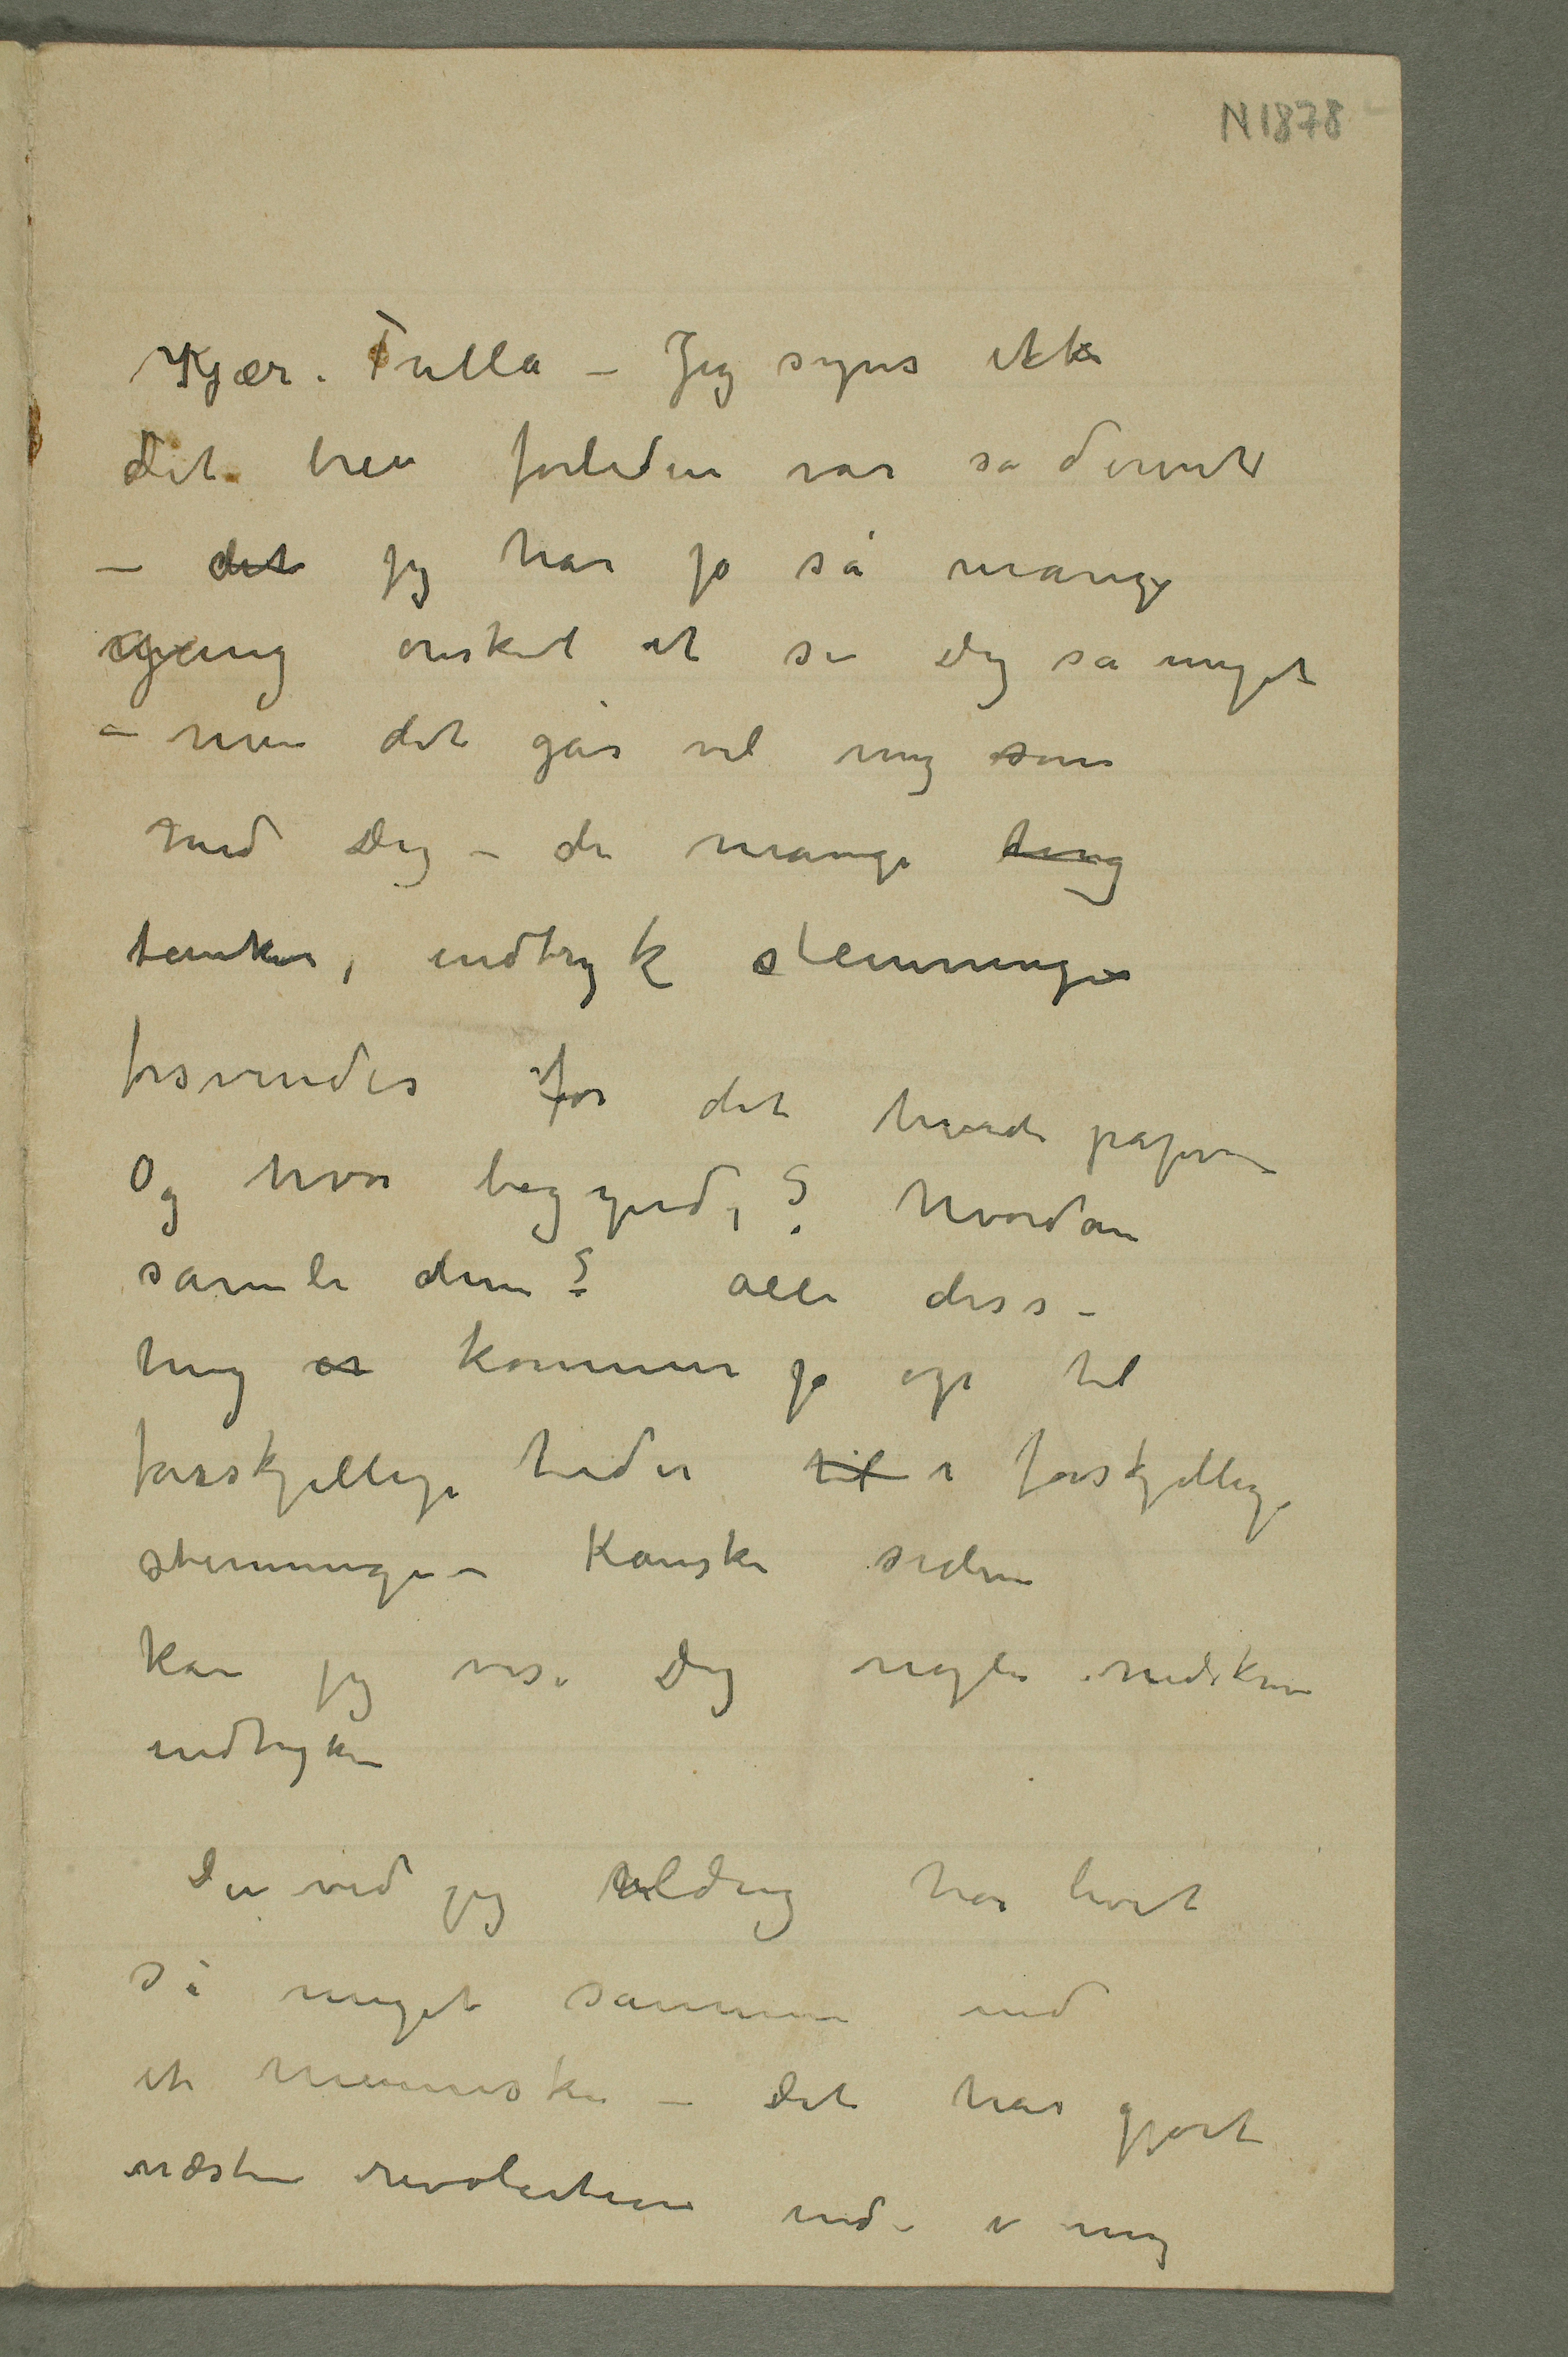 N 1878
Kjære Tulla – Jeg synes ikke
dit brev forleden var så dumt
– det jeg har jo så mange
gang ønsket at se Dig så meget
– men det går vel mig som
med Dig – de mange ting
tanker, indtryk stemninger
forsvinder for det hvide papir –
Og hvor begynde? hvordan
samle dem? alle disse
ting er kommer jo op til
forskjellige tider til i forskjellige
stemninger – Kanske siden
kan jeg vise Dig nogle nedskrevne
indtryk –
Du ved jeg aldrig har levet
så meget sammen med
et menneske – Det har gjort
næsten revolution inde i mig